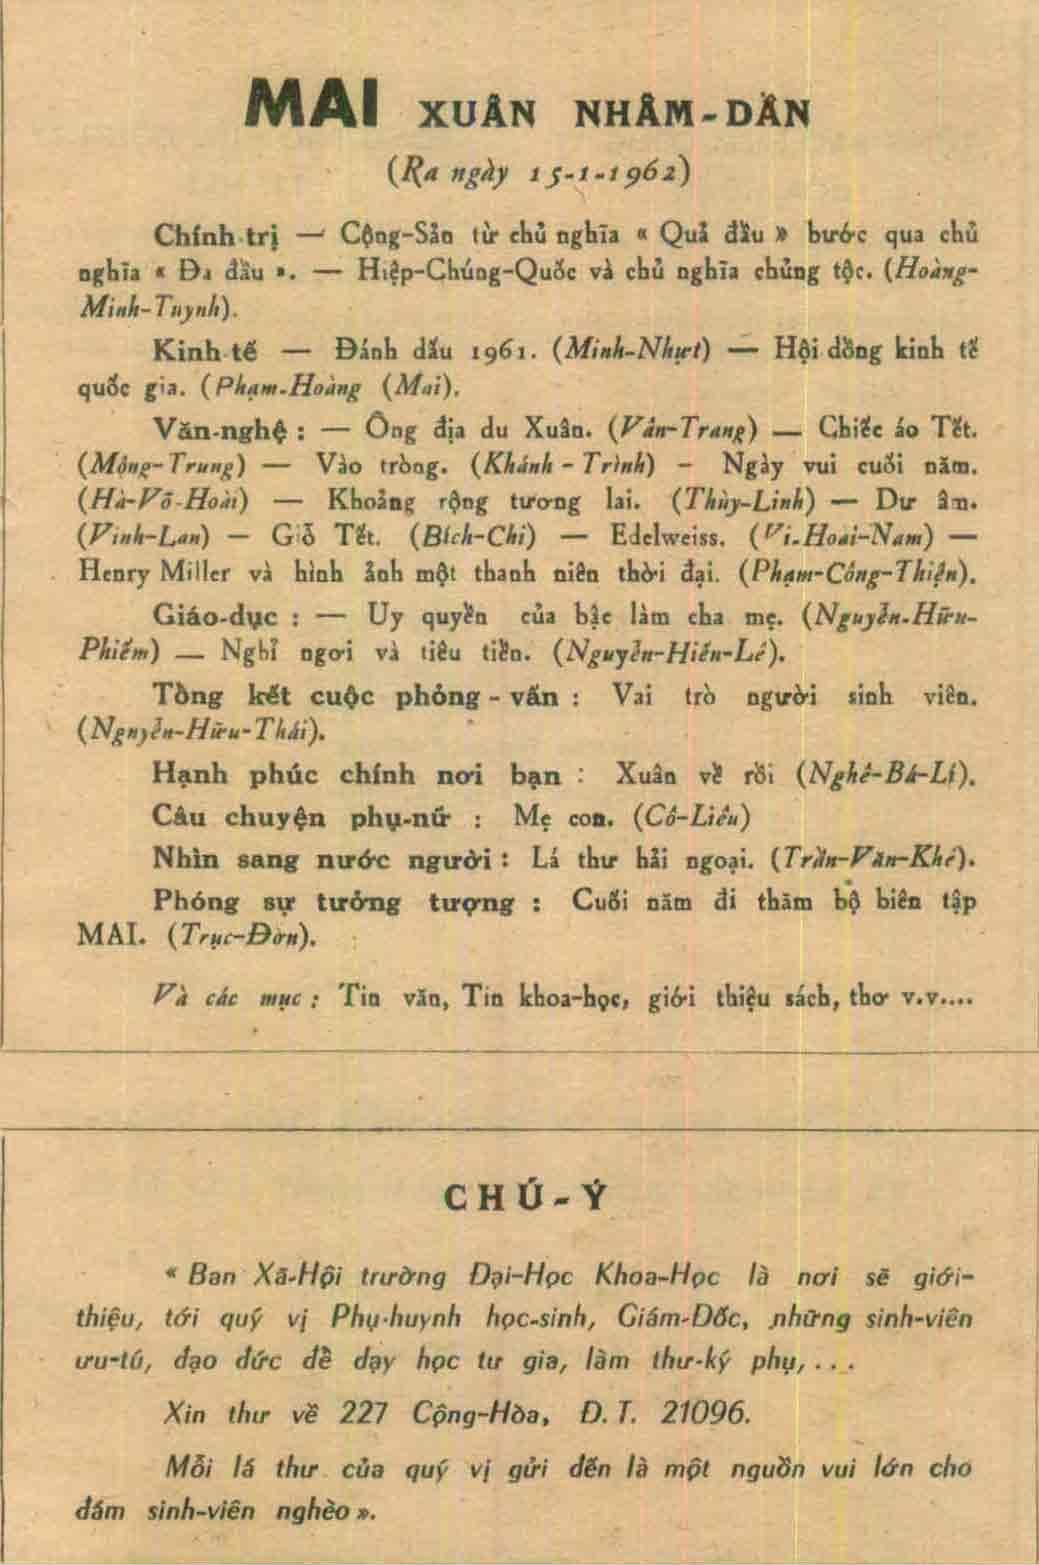 MAI XUÂN NHÂM-DẦN
(Ra ngày 15-1-1962)
Chính-trị — Cộng-Sản từ chủ nghĩa « Quả đầu » bước qua chủ
nghĩa « Đa đầu ». — Hiệp-Chúng-Quốc và chủ nghĩa chủng tộc. (Hoàng-
Minh-Tuynh).
Kinh-tế — Đánh dấu 1961. (Minh-Nhựt) — Hội đồng kinh tế
quốc gia. (Phạm-Hoàng (Mai).
Văn-nghệ : — Ông địa du Xuân. (Vân-Trang) — Chiếc áo Tết.
(Mộng-Trung) — Vào tròng. (Khánh-Trình) – Ngày vui cuối năm.
(Hà-Võ-Hoài) — Khoảng rộng tương lai. (Thùy-Linh) — Dư âm.
(Vinh-Lan) — Giỗ Tết. (Bích-Chi) — Edelweiss. (Vi-Hoài-Nam) —
Henry Miller và hình ảnh một thanh niên thời đại. (Phạm-Công-Thiện).
Giáo-dục : — Uy quyền của bậc làm cha mẹ. (Nguyễn-Hữu-
Phiếm) — Nghỉ ngơi và tiêu tiền. (Nguyễn-Hiến-Lê).
Tổng kết cuộc phỏng-vấn : Vai trò người sinh viên.
(Nguyễn-Hữu-Thái).
Hạnh phúc chính nơi bạn : Xuân về rồi (Nghê-Bá-Lí).
Câu chuyện phụ-nữ : Mẹ con. (Cô-Liêu)
Nhìn sang nước người : Lá thư hải ngoại. (Trần-Văn-Khê).
Phóng sự tưởng tượng : Cuối năm đi thăm bộ biên tập
MAI. (Trục-Đờn).
Và các mục : Tin văn, Tin khoa-học, giới thiệu sách, thơ v.v....
CHÚ-Ý
« Ban Xã-Hội trường Đại-Học Khoa-Học là nơi sẽ giới-
thiệu, tới quý vị Phụ-huynh học-sinh, Giám-Đốc, những sinh-viên
ưu-tú, đạo đức để dạy học tư gia, làm thư-ký phụ, . . .
Xin thư về 227 Cộng-Hòa, Đ.T. 21096.
Mỗi lá thư của quý vị gửi đến là một nguồn vui lớn cho
đám sinh-viên nghèo ».